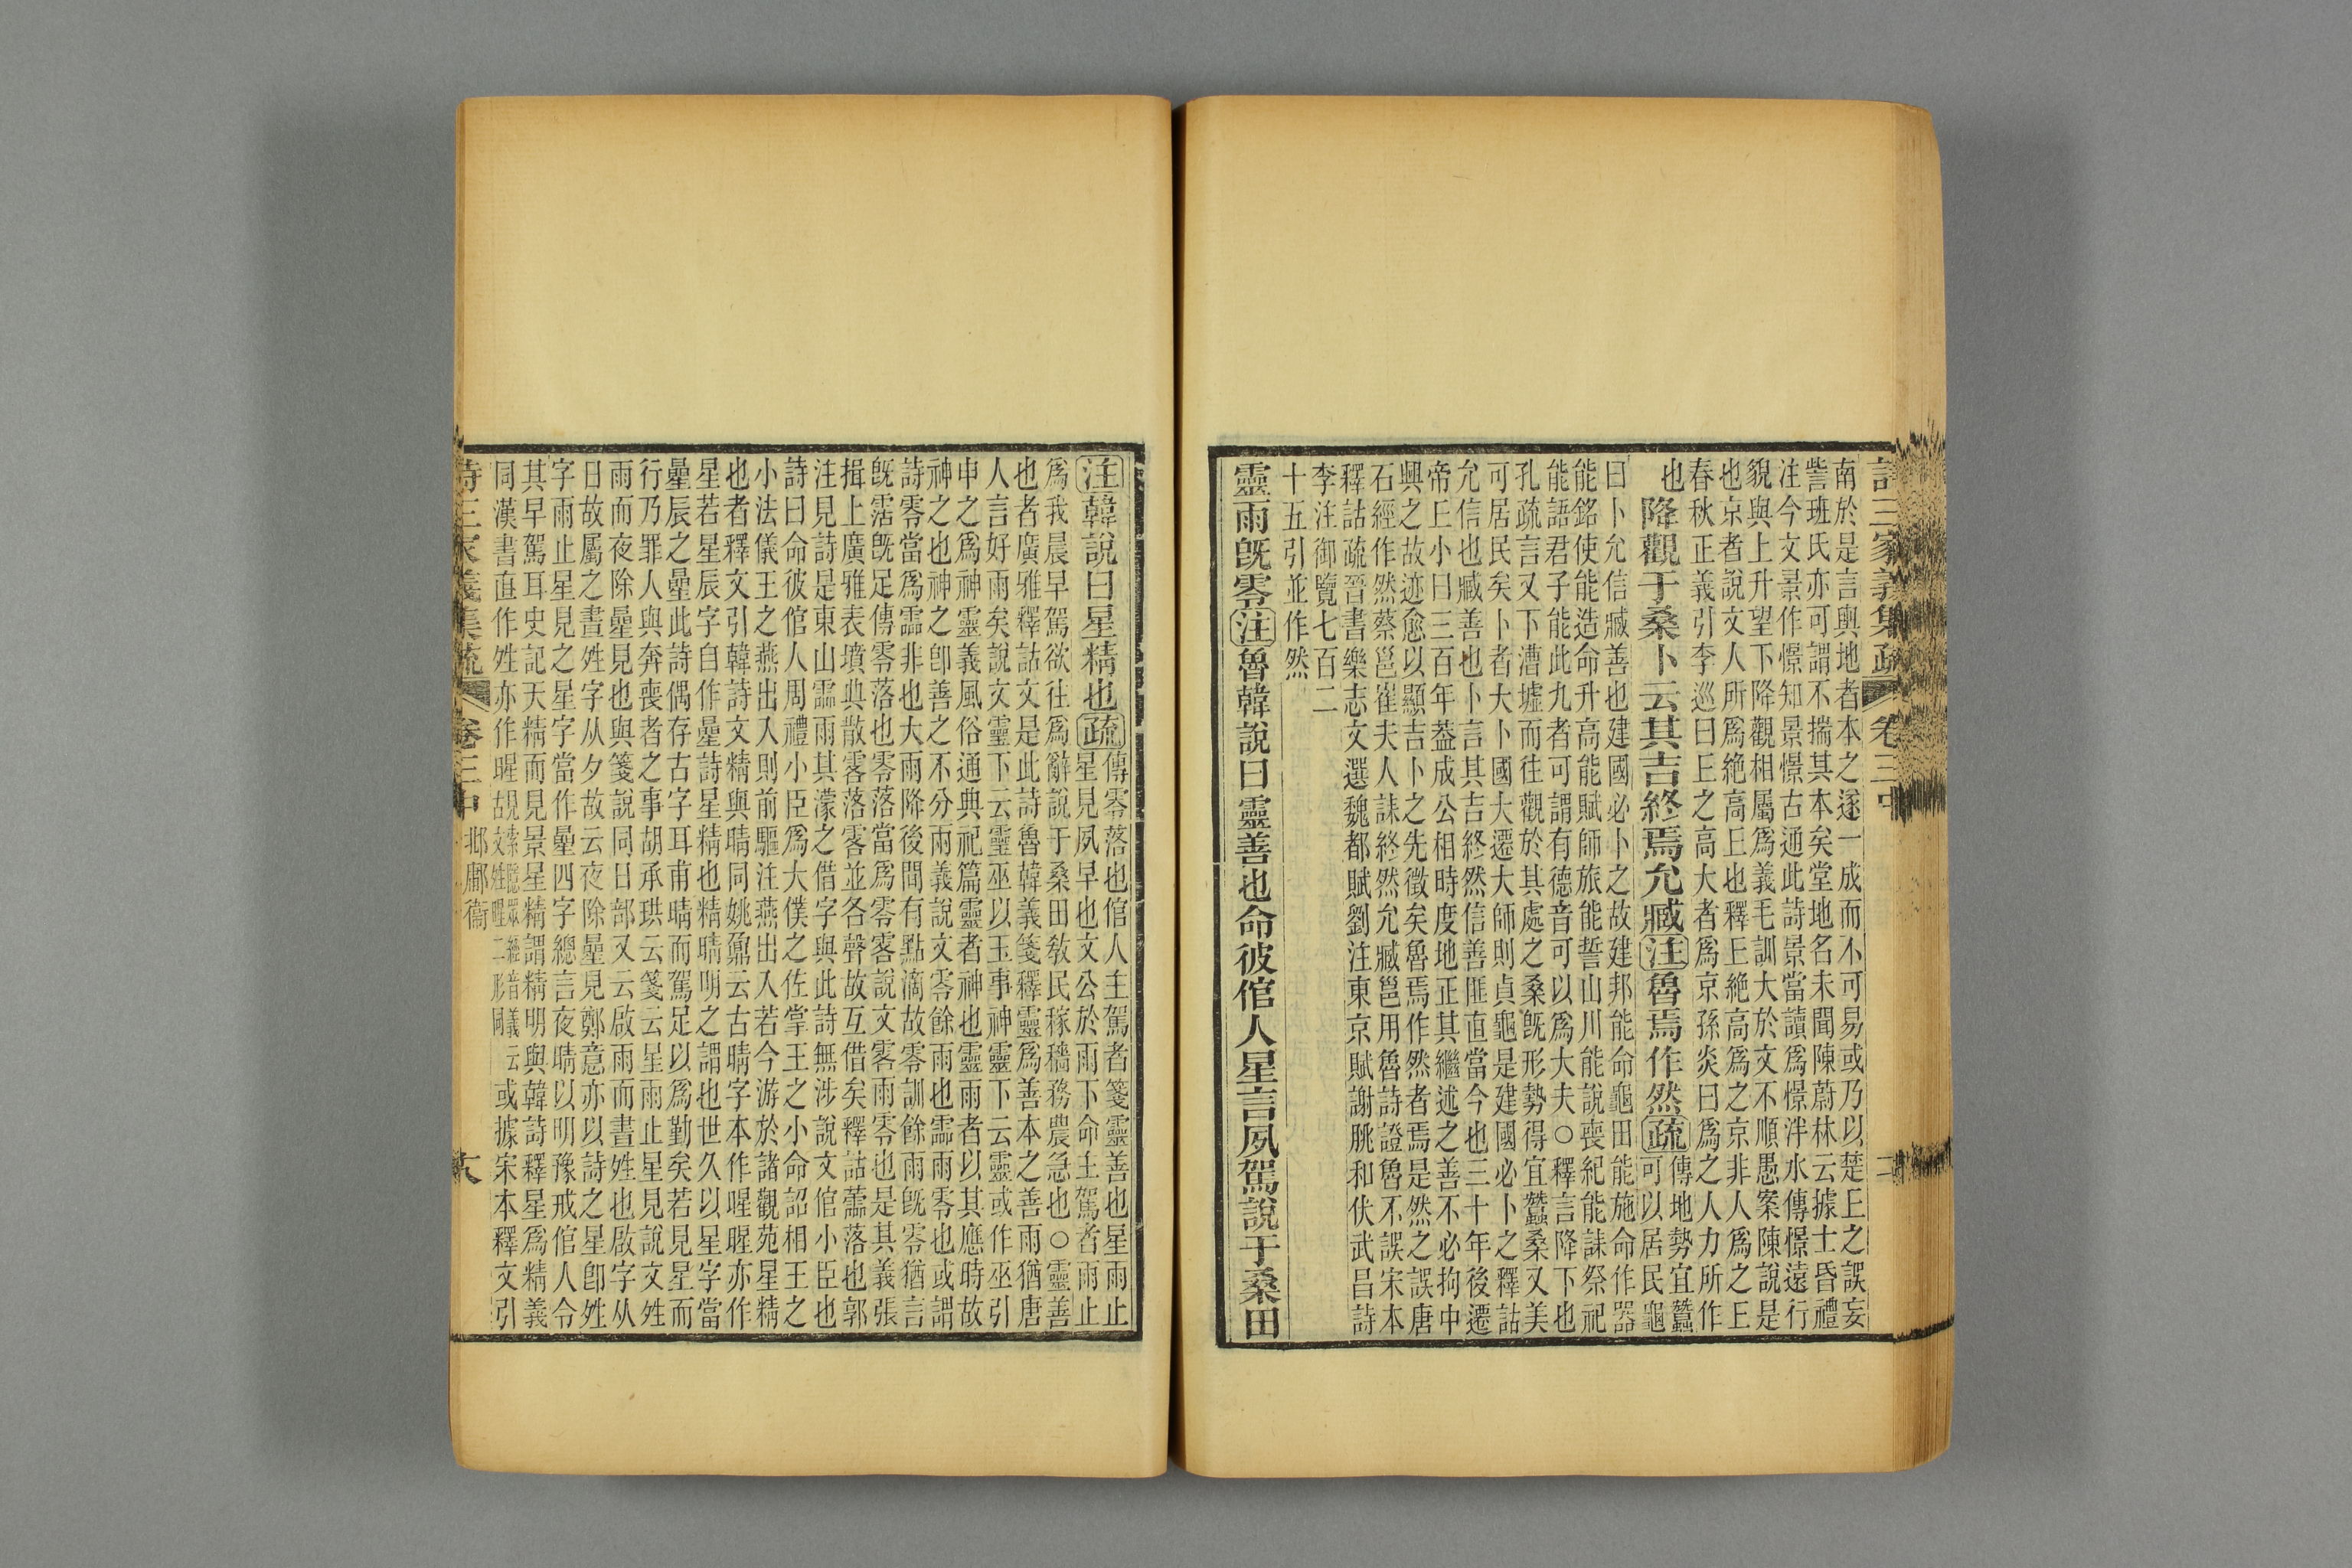 詩三家義集疏 卷三中
南於是言與地者本之遂一成而不可易或乃以楚王之誤妄
訾班氏亦可謂不揣其本矣堂地名未聞陳蔚林云據士昏禮
注今文景作憬知景憬古通此詩景當讀爲憬泮水傳憬遠行
貌與上升望下降觀相屬爲義毛訓大於文不順愚案陳說是
也京者說文人所爲絶高王也釋王絶高爲之京非人爲之王
春秋正義引李巡曰王之高大者爲京孫炎曰爲之人力所作
也
降觀于桑卜云其吉終焉允臧注魯焉作然疏傳地勢宜蠶
可以居民龜
曰卜允信臧善也建國必卜之故建邦能命龜田能施命作器
能銘使能造命升高能賦師旅能誓山川能說喪紀能誄祭祀
能語君子能此九者可謂有德音可以爲大夫○釋言降下也
孔疏言又下漕墟而往觀於其處之桑既形勢得宜蠶桑又美
可居民矣卜者大卜國大遷大師則貞龜是建國必卜之釋詁
允信也臧善也卜言其吉終然信善匪直當今也三十年後遷
帝王小曰三百年葢成公相時度地正其繼述之善不必拘中
興之故迹愈以顯吉卜之先徵矣魯焉作然者焉是然之誤唐
石經作然蔡邕崔夫人誄終然允臧邕用魯詩證魯不誤宋本
釋詁疏晉書樂志文選魏都賦劉注東京賦謝朓和伏武昌詩
李注御覽七百二
十五引並作然
靈雨既零注魯韓說曰靈善也命彼倌人星言夙駕說于桑田
注韓說曰星精也疏傳零落也倌人主駕者箋靈善也星雨止
星見夙早也文公於雨下命主駕者雨止
爲我晨早駕欲往爲辭說于桑田教民稼穡務農急也○靈善
也者廣雅釋詁文是此詩魯韓義箋釋靈爲善本之善雨猶唐
人言好雨矣說文靈下云靈巫以玉事神靈下云靈或作巫引
申之爲神靈義風俗通典祀篇靈者神也靈雨者以其應時故
神之也神之卽善之不分兩義說文零餘雨也霝雨零也或謂
詩零當爲霝非也大雨降後閒有點滴故零訓餘雨既零猶言
既霑既足傳零落也零落當爲零霚說文零雨零也是其義張
揖上廣雅表墳典散零落零並各聲故互借矣釋詁蘦落也郭
注見詩是東山霝雨其濛之借字與此詩無涉說文倌小臣也
詩曰命彼倌人周禮小臣爲大僕之佐掌王之小命詔相王之
小法儀王之燕出入則前驅注燕出入若今游於諸觀苑星精
也者釋文引韓詩文精與晴同姚鼐云古晴字本作暒暒亦作
星若星辰字自作曐詩星精也精晴明之謂也世久以星字當
曐辰之曐此詩偶存古字耳甫晴而駕足以爲勤矣若見星而
行乃罪人與奔喪者之事胡承珙云箋云星雨止星見說文姓
雨而夜除曐見也與箋說同日部又云啟雨而晝姓也啟字从
日故屬之晝姓字从夕故云夜除曐見鄭意亦以詩之星卽姓
字雨止星見之星字當作曐四字總言夜晴以明豫戒倌人令
其早駕耳史記天精而見景星精謂精明與韓詩釋星爲精義
同漢書直作姓亦作暒胡文姓暒二形同索隱眾經音義云或據宋本釋文引
詩三家義集疏 卷三中 邶鄘衞 十八